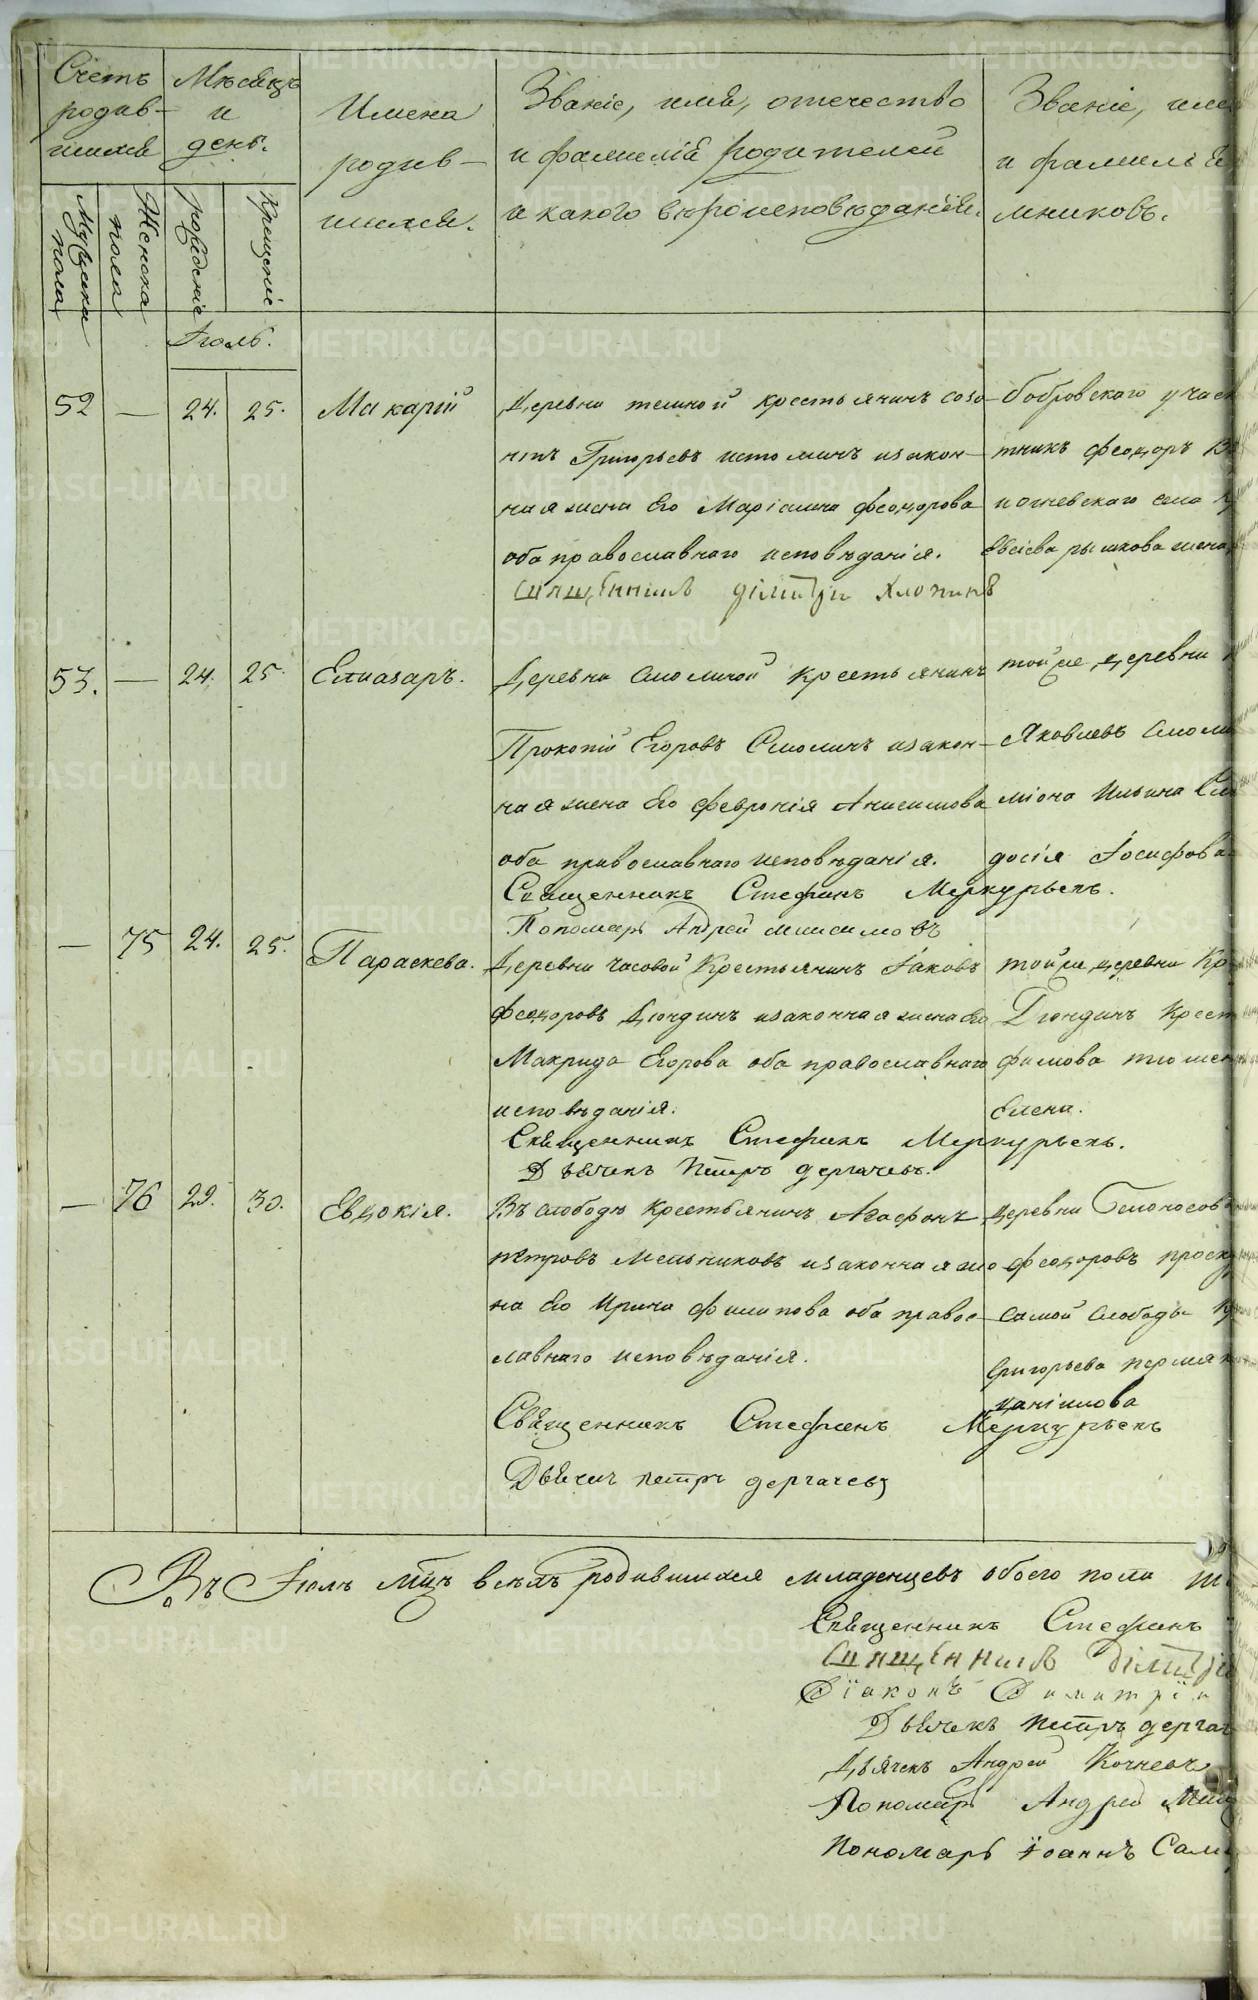 Счетъ родив-шихся
Мѣсяцъ и день.
Имена родив-шихся.
Званіе, имя, отечество
и фамилія родителей
и какого вѣроисповѣданія.
Званіе, имя
и фамилія
мниковъ.
Мужска пола
Женска пола
рожденіе
Крещеніе
Іюль.
52 — 24. 25. Макарій
Деревни темной крестьянинъ созо-
нтъ Григорьевъ истоминъ и закон-
ная жена Его Маріамна Феодорова
оба православнаго исповѣданія.
Священникъ Димитрій Хлопинъ
бобровского участ
тникъ Феодоръ
и огневскаго села
Евсіева рышкова жена
53. — 24. 25. Елиазаръ.
Деревни Смолиной крестьянинъ
Прокопій Егоровъ Смолинъ и закон-
ная жена Его Февронія Анисимова
оба православнаго исповѣданія.
Священникъ Стефанъ Меркурьевъ.
Пономарь Андрей
тойже деревни
Яковлевъ Смоли
міона Ильина
досія Іосифова
— 75 24. 25. Параскева.
Деревни Часовой Крестьянинъ Іаковъ
Феодоровъ Дюндинъ и законная жена Его
Макрида Егорова оба православнаго
исповѣданія.
Священникъ Стефанъ Меркурьевъ.
Дьячекъ Петръ дергачевъ.
тойже деревни Кр
Дюндинъ Крест
фимова
Елена.
— 76 29. 30. Евдокія.
Въ слободѣ Крестьянинъ Агафонъ
петровъ Мельниковъ и законная же-
на Его Ирина Филипова оба правос-
лавнаго исповѣданія.
Священникъ Стефанъ Меркурьевъ
Дьячекъ петръ дергачевъ
деревни Белоносов
Феодоровъ
самой слободы
Григорьева
даніилова
Въ Іюлѣ Мцѣ всѣхъ родившихся младенцевъ обоего пола
Священникъ Стефанъ
Священникъ Димитрій
Діаконъ Димитрій
Дьячекъ петръ дергач
Дьячекъ Андрей Кочневъ
Пономарь Андрей
Пономарь Іоаннъ
METRIKI.GASO-URAL.RU